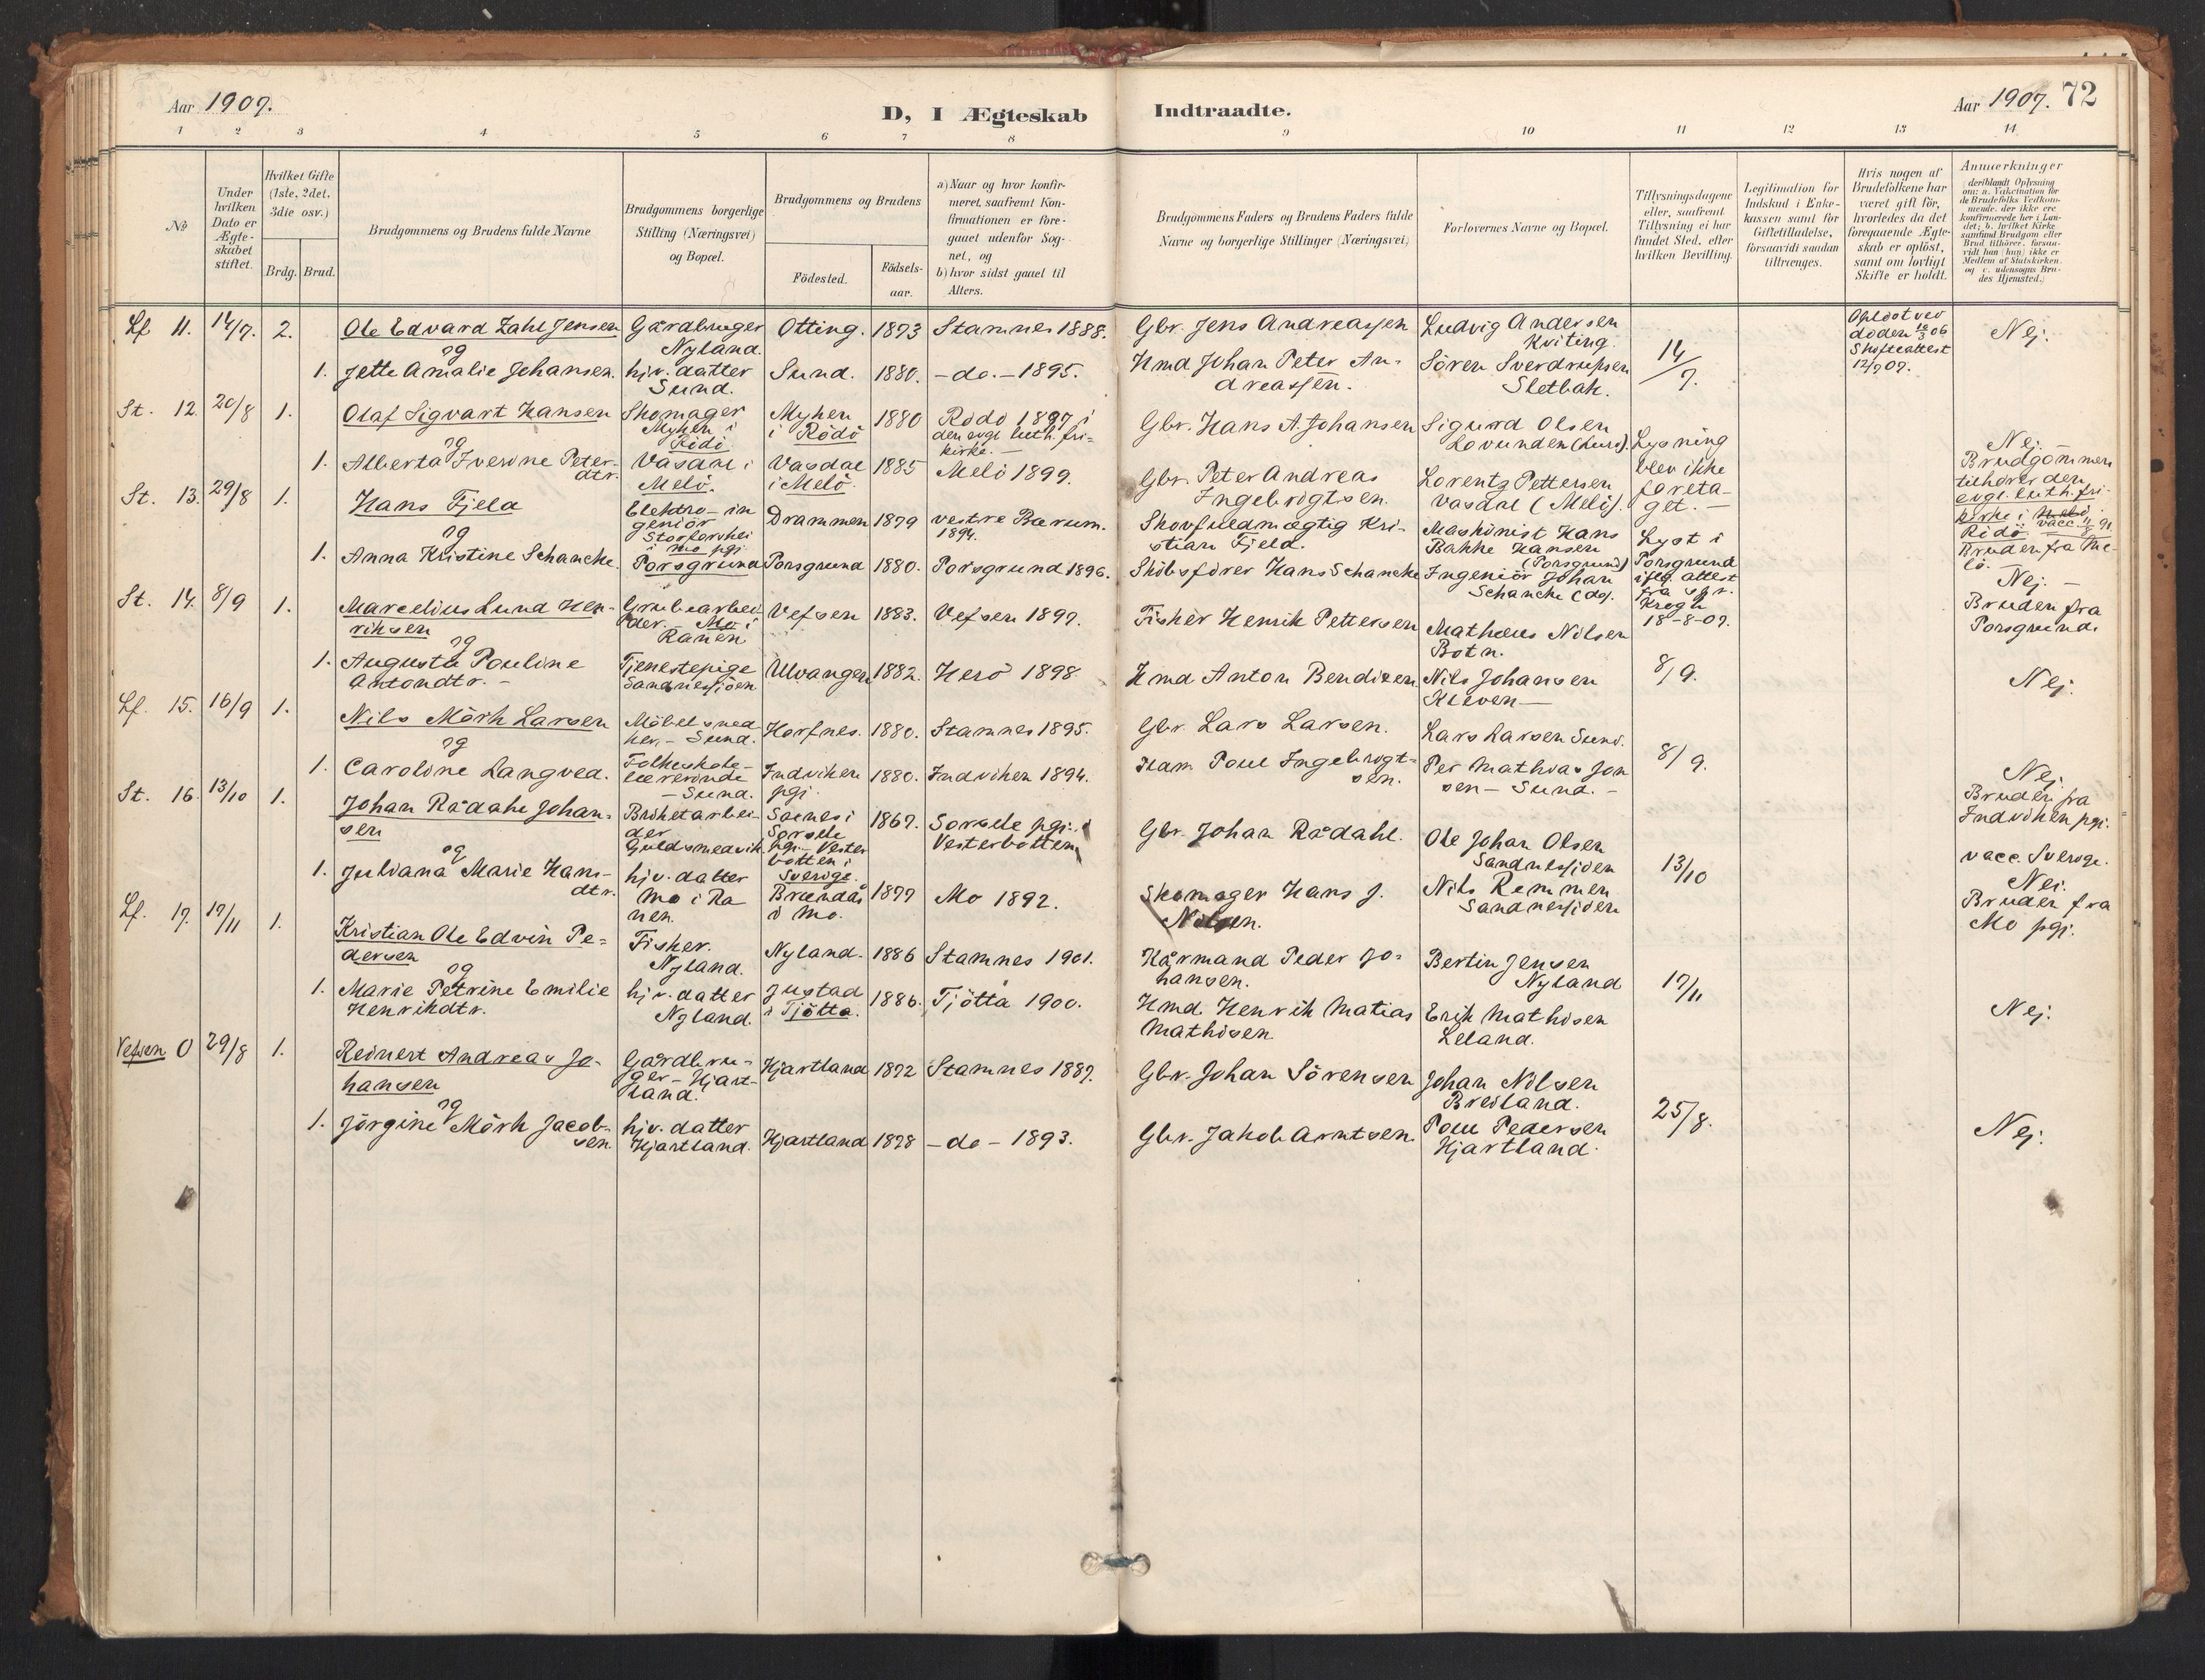 Aar 1907.
D, I Ægteskab Indtraadte.
Aar 1907. 72
1 2 3 4 5 6 7 8 9 10 11 12 13 14
No
Under hvilken Dato er Ægteskabet stiftet.
Hvilket Gifte (1ste, 2det, 3die osv.)
Brdg. Brud.
Brudgommens og Brudens fulde Navne
Brudgommens borgerlige Stilling (Næringsvei) og Bopæl.
Brudgommens og Brudens
Födested.
Födsels-aar.
a) Naar og hvor konfirmeret, saafremt Konfirmationen er foregaaet udenfor Sognet, og
b) hvor sidst gaaet til Alters.
Brudgommens Faders og Brudens Faders fulde Navne og borgerlige Stillinger (Næringsvei)
Forlovernes Navne og Bopæl.
Tillysningsdagene eller, saafremt Tillysning ei har fundet Sted, efter hvilken Bevilling.
Legitimation for Indskud i Enkekassen samt for Giftetilladelse, forsaavidt saadan tiltrænges.
Hvis nogen af Brudefolkene har været gift för, hvorledes da det foregaaende Ægteskab er oplöst, samt om lovligt Skifte er holdt.
Anmærkninger (deriblandt Oplysning om: a. Vakcination for de Brudefolks Vedkommende, der ikke ere konfirmerede her i Landet; b. hvilket Kirkesamfund Brudgom eller Brud tilhörer, forsaavidt han (hun) ikke er Medlem af Statskirken og c. udensogns Brudes Hjemsted.)
Lf 11. 14/7. 2. Ole Edvard Zahl Jensen Gårdbruger Nyland. Otting. 1873 Stamnes 1888. Gbr. Jens Andreassen Ludvig Andersen Kviting. 14/7. Oplöst ved döden 10/3 06 Skifteattest 12/7 07. Nej.
og
1. Jette Amalie Johansen. hjv. datter Sund. Sund. 1880. -do.- 1895. Hmd Johan Peter Andreassen. Sören Sverdrupsen Sletbak.
St. 12. 20/8 1. Olaf Sigvart Hansen Skomager Myken i Rödö Myken i Rödö 1880 Rödö 1897 i den evgl. luth. frikirke.- Gbr. Hans A. Johansen Sigurd Olsen Lovunden (Lurö). Lysning blev ikke foretaget.- Nej.- Brudgommen tilhörer den evgl. luth. frikirke i Rödö. vacc. Bruden fra Melö.-
og
1. Alberta Iverine Petersdtr. Vasdal i Melö. Vasdal i Melö. 1885 Melö 1899. Gbr. Peter Andreas Ingebrigtsen. Lorentz Pettersen Vasdal (Melö).
St. 13. 29/8 1. Hans Fjeld Elektro-ingeniör Storforshei i Mo pgj Drammen 1879 vestre Bærum. 1894. Skovfuldmægtig Kristian Fjeld. Maskinist Hans Bakke Hansen (Porsgrund) Lyst i Porsgrund iflg. attest fra spr. Krogh 18-8-07. Nej.- Bruden fra Porsgrund.
og
1. Anna Kristine Schancke. Porsgrund Porsgrund 1880. Porsgrund 1896. Skibsförer Hans Schancke Ingeniör Johan Schancke (do).
St. 14. 8/9 1. Marcelius Lund Henriksen Grubearbeider.- Mo i Ranen Vefsen 1883. Vefsen 1897. Fisker Henrik Pettersen Mathæus Nilsen Botn. 8/9. Nej.
og
1. Augusta Pauline Antondtr.- Tjenestepige Sandnessjöen. Ulvangen 1882. Herö 1898. Hmd Anton Bendixen. Nils Johansen Kleven-
Lf. 15. 16/9 1. Nils Mörk Larsen Möbelsnedker.- Sund. Horfnes. 1880. Stamnes 1895. Gbr. Lars Larsen. Lars Larsen Sund. 8/9. Nej. Bruden fra Indviken pgj.
og
1. Caroline Langved. Folkeskolelærerinde - Sund. Indviken pgj. 1880. Indviken 1894. Kam. Poul Ingebrigtsen. Per Mathias Jonsen - Sund.-
St. 16. 13/10 1. Johan Rådahl Johansen Briketarbeider Guldsmedvik Saines i Sorsele pgj.- Vesterbotten i Sverige. 1867. Sorsele pgj. i Vesterbotten Gbr. Johan Rådahl. Ole Johan Olsen Sandnessjöen 13/10 vacc. Sverige. Nei. Bruden fra Mo pgj.
og
1. Juliana Marie Hansdtr. hjv. datter Mo i Ranen. Brændås i Mo. 1877 Mo 1892. Skomager Hans J. Nilsen. Nils Remmen Sandnessjöen
Lf. 17. 17/11 1. Kristian Ole Edvin Pedersen Fisker. Nyland. Nyland. 1886 Stamnes 1901. Kårmand Peder Johansen. Bertin Jensen Nyland 17/11 Nej.
og
1. Marie Petrine Emilie Henrikdtr. hjv. datter Nyland. Justad i Tjötta. 1886. Tjötta 1900. Hmd. Henrik Matias Mathisen. Erik Mathisen Leland.
Vefsen 0 29/8 1. Reinert Andreas Johansen Gårdbruger - Hjartland. Hjartland 1872 Stamnes 1887. Gbr. Johan Sörensen Johan Nilsen Breiland. 25/8. Nej.
og
1. Jörgine Mörk Jacobsen. hjv. datter Hjartland. Hjartland 1878 -do- 1893. Gbr. Jakob Arntsen. Poul Pedersen Hjartland.